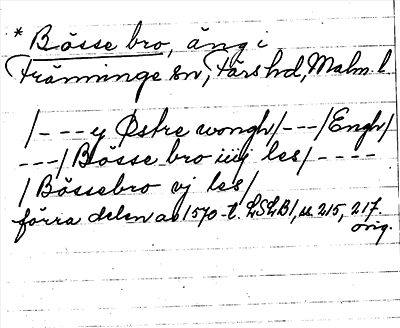 * Bösse bro, äng i
Tränninge sn, Färs hd, Malm. l.
/---y Østre wongh/---/Engh/
---/Bösse bro iiij les/----
/Bössebro vj les/
förra delen av 1570-t. LSLB1, s. 215, 217.
orig.